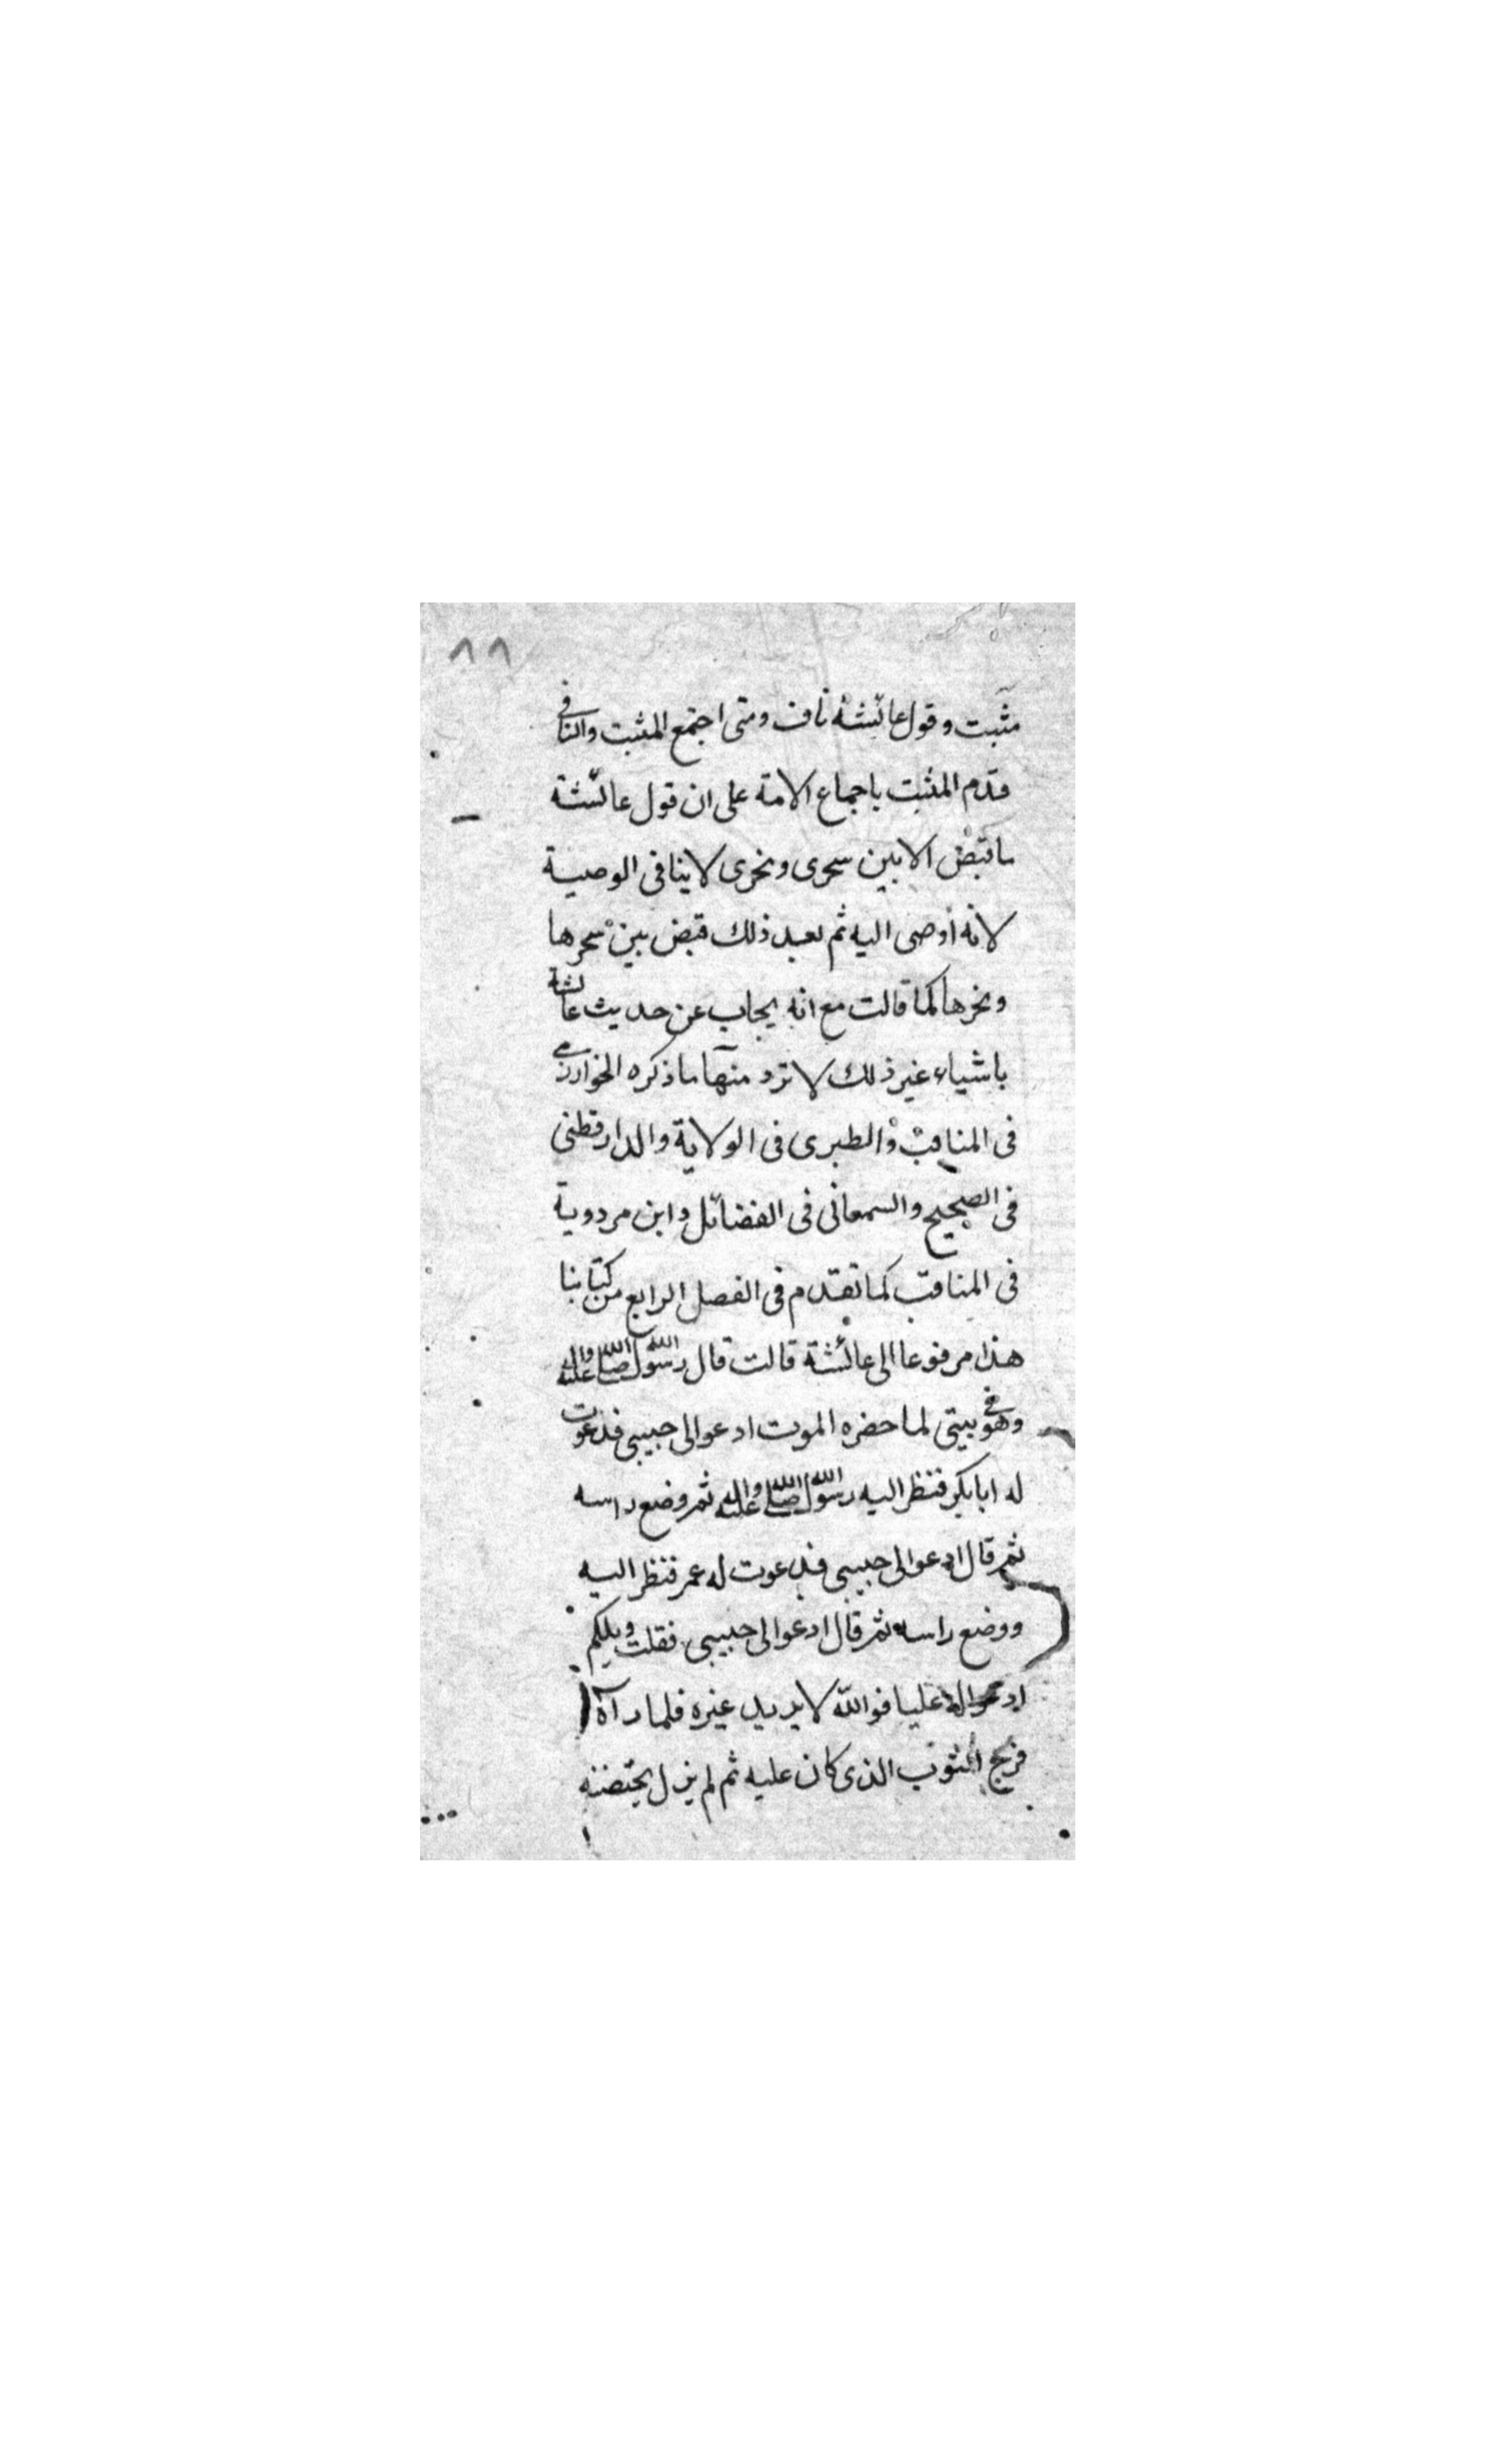 ٨٨
مثبت وقول عائشة ناف ومتى اجتمع المثبت والنافى
قدم المثبت باجماع الامة على ان قول عائشة
ما قبض الا بين سحرى ونحرى لا ينافى الوصية
لانه اوصى اليه ثم بعد ذلك قبض بين سحرها
ونحرها كما قالت مع انه يجاب عن حديث عائشة
باشياء غير ذلك لا ترد منها ما ذكره الخوارزمى
فى المناقب والطبرى فى الولاية والدارقطنى
فى الصحيح والسمعانى فى الفضائل وابن مردوية
فى المناقب كما تقدم فى الفصل الرابع من كتابنا
هذا مرفوعا الى عائشة قالت قال رسول الله صلى الله عليه واله
وهو فى بيتى لما حضره الموت ادعوا لى حبيبى فدعوت
له ابا بكر فنظر اليه رسول الله صلى الله عليه واله ثم وضع راسه
ثم قال ادعوا لى حبيبى فدعوت له عمر فنظر اليه
ووضع راسه ثم قال ادعوا لى حبيبى فقلت ويلكم
ادعوا له عليا فوالله لا يريد غيره فلما رآه
فرج الثوب الذى كان عليه ثم لم يزل يحتضنه